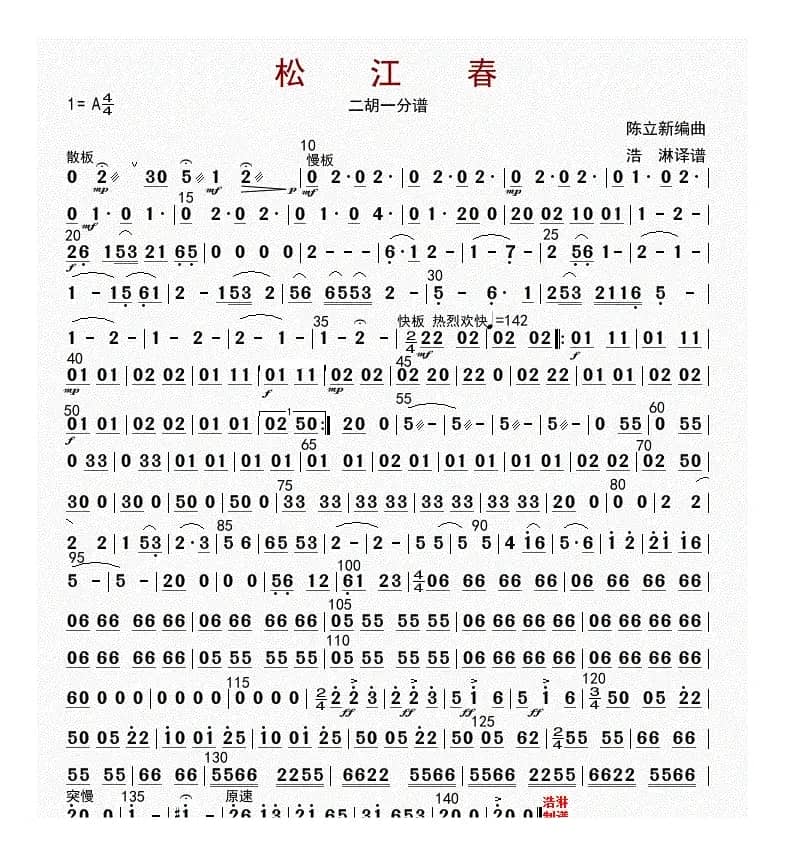 松 江 春
1= A 4/4
二胡一分谱
陈立新编曲
浩 淋译谱
散板 10 慢板
0 2 30 5 1 2 | 0 2·02· | 0 2·02· | 0 2·02· | 0 1·02· |
mp mf p mf mp
15
0 1·0 1· | 0 2·0 2· | 0 1·0 4· | 0 1·20 0 | 20 02 10 01 | 1 - 2 - |
mf
20 25
26 153 21 65 | 0 0 0 0 | 2 - - - | 6·1 2 - | 1 - 7 - | 2 56 1 - | 2 - 1 - |
f
30
1 - 15 61 | 2 - 153 2 | 56 6553 2 - | 5 - 6· 1 | 253 2116 5 - |
35 快板 热烈欢快 ♩=142
1 - 2 - | 1 - 2 - | 2 - 1 - | 1 - 2 - | 2/4 22 02 | 02 02 |: 01 11 | 01 11 |
mf f
40 45
01 01 | 02 02 | 01 11 | 01 11 | 02 02 | 02 20 | 22 0 | 02 22 | 01 01 | 02 02 |
mp f mp
50 55 60
01 01 | 02 02 | 01 01 | 1 02 50 :| 20 0 | 5 - | 5 - | 5 - | 5 - | 0 55 | 0 55 |
f
65 70
0 33 | 0 33 | 01 01 | 01 01 | 01 01 | 02 01 | 01 01 | 01 02 | 02 02 | 02 50 |
75 80
30 0 | 30 0 | 50 0 | 50 0 | 33 33 | 33 33 | 33 33 | 33 33 | 20 0 | 0 0 | 2 2 |
85 90
2 2 | 1 53 | 2·3 | 5 6 | 65 53 | 2 - | 2 - | 55 5 | 5 5 | 4 16 | 5·6 | 1 2 | 21 16 |
95 100
5 - | 5 - | 20 0 | 0 0 | 56 12 | 61 23 | 4/4 06 66 66 66 | 06 66 66 66 |
105
06 66 66 66 | 06 66 66 66 | 05 55 55 55 | 06 66 66 66 | 06 66 66 66 |
110
06 66 66 66 | 05 55 55 55 | 05 55 55 55 | 06 66 66 66 | 06 66 66 66 |
115 120
60 0 0 0 | 0 0 0 0 | 0 0 0 0 | 2/4 2 2 3 | 2 2 3 | 5 1 6 | 5 1 6 | 3/4 50 05 22 |
ff ff ff ff
125
50 05 22 | 10 01 25 | 10 01 25 | 50 05 22 | 50 05 62 | 2/4 55 55 | 66 66 |
130
55 55 | 66 66 | 5566 2255 | 6622 5566 | 5566 2255 | 6622 5566 |
突慢 135 原速 140 浩淋
20 0 | 1 - | #1 - | 26 13 | 65 31 | 63 13 | 20 0 | 20 0 | 制谱